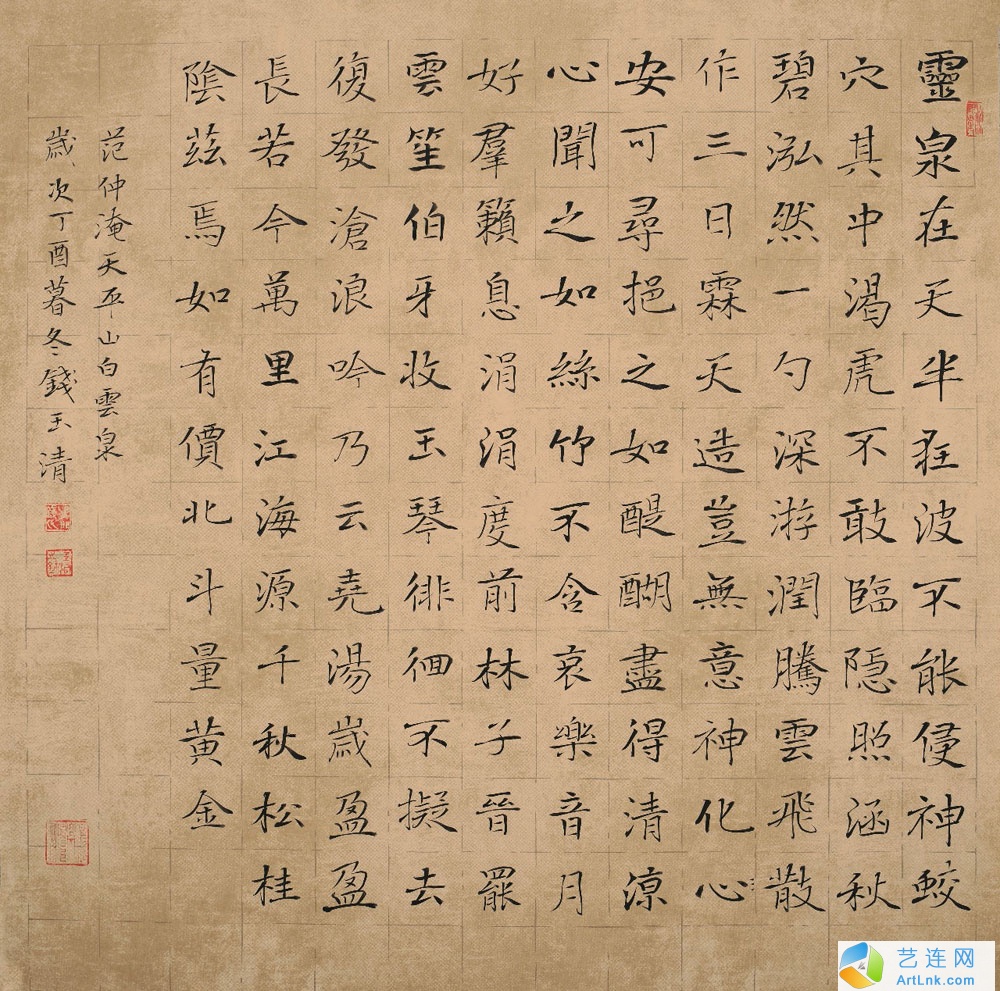 靈泉在天半狂波不能侵神蛟
穴其中渴虎不敢臨隱照涵秋
碧泓然一勺深游潤騰雲飛散
作三日霖天造豈無意神化心
安可尋挹之如醍醐盡得清涼
心聞之如絲竹不含哀樂音月
好羣籟息涓涓度前林子晉罷
雲笙伯牙收玉琴徘徊不擬去
復發滄浪吟乃云堯湯歲盈盈
長若今萬里江海源千秋松桂
陰茲焉如有價北斗量黃金
范仲淹天平山白雲泉
歲次丁酉暮冬錢玉清
艺连网
ArtLnk.com